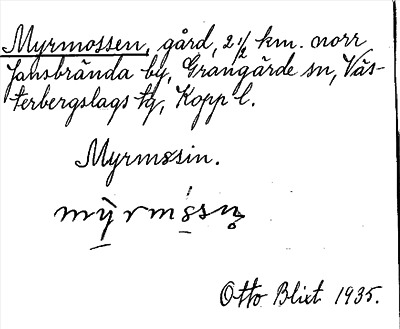 Myrmossen, gård, 2 1/2 km. norr
Jansbrända by, Grangärde sn, Väs-
terbergslags tg, Kopp l.
Myrmosin.
Otto Blixt 1935.